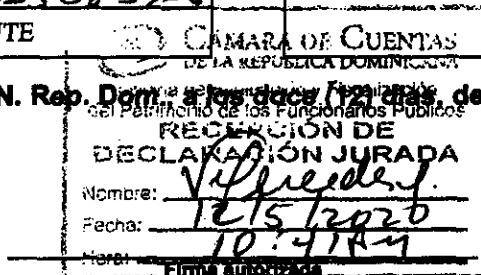 UTE
CÁMARA DE CUENTAS
DE LA REPÚBLICA DOMINICANA
N. Rep. Dom., a los doce (12) días, de
del Patrimonio de los Funcionarios Públicos
RECEPCIÓN DE
DECLARACIÓN JURADA
Nombre:
Fecha: 12/5/2020
Hora: 10:41AM
Firma autorizada